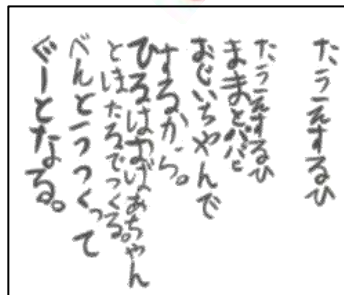 たうえするひ
たうえするひ
ままとパパと
おじいちゃんで
するから。
ひるはおばあちゃん
とほたるでつくる。
べんとうつくって
ぐーとなる。